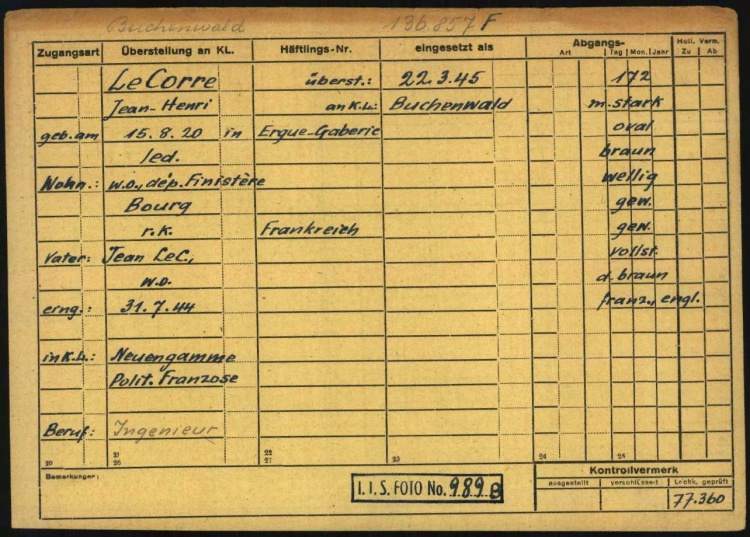 Buchenwald 136.857 F
Zugangsart Überstellung an KL. Häftlings-Nr. eingesetzt als Abgangs- Holl. Verm.
Art Tag Mon. Jahr Zu Ab
Le Corre überst.: 22.3.45 172
Jean-Henri an K.L.: Buchenwald m.stark
geb. am 15.8.20 in Ergue-Gaberie oval
led. braun
Wohn.: w.o., dép. Finistère wellig
Bourg gew.
r.k. Frankreich gew.
Vater: Jean LeC., vollst.
w.o. d.braun
erng.: 31.7.44 franz., engl.
in K.L.: Neuengamme
Polit. Franzose
Beruf: Ingenieur
20 21 26 22 27 23 24 25
Bemerkungen: I.I.S. FOTO No. 989 B Kontrollvermerk
ausgestellt verschlüsselt Lochk. geprüft
77.360